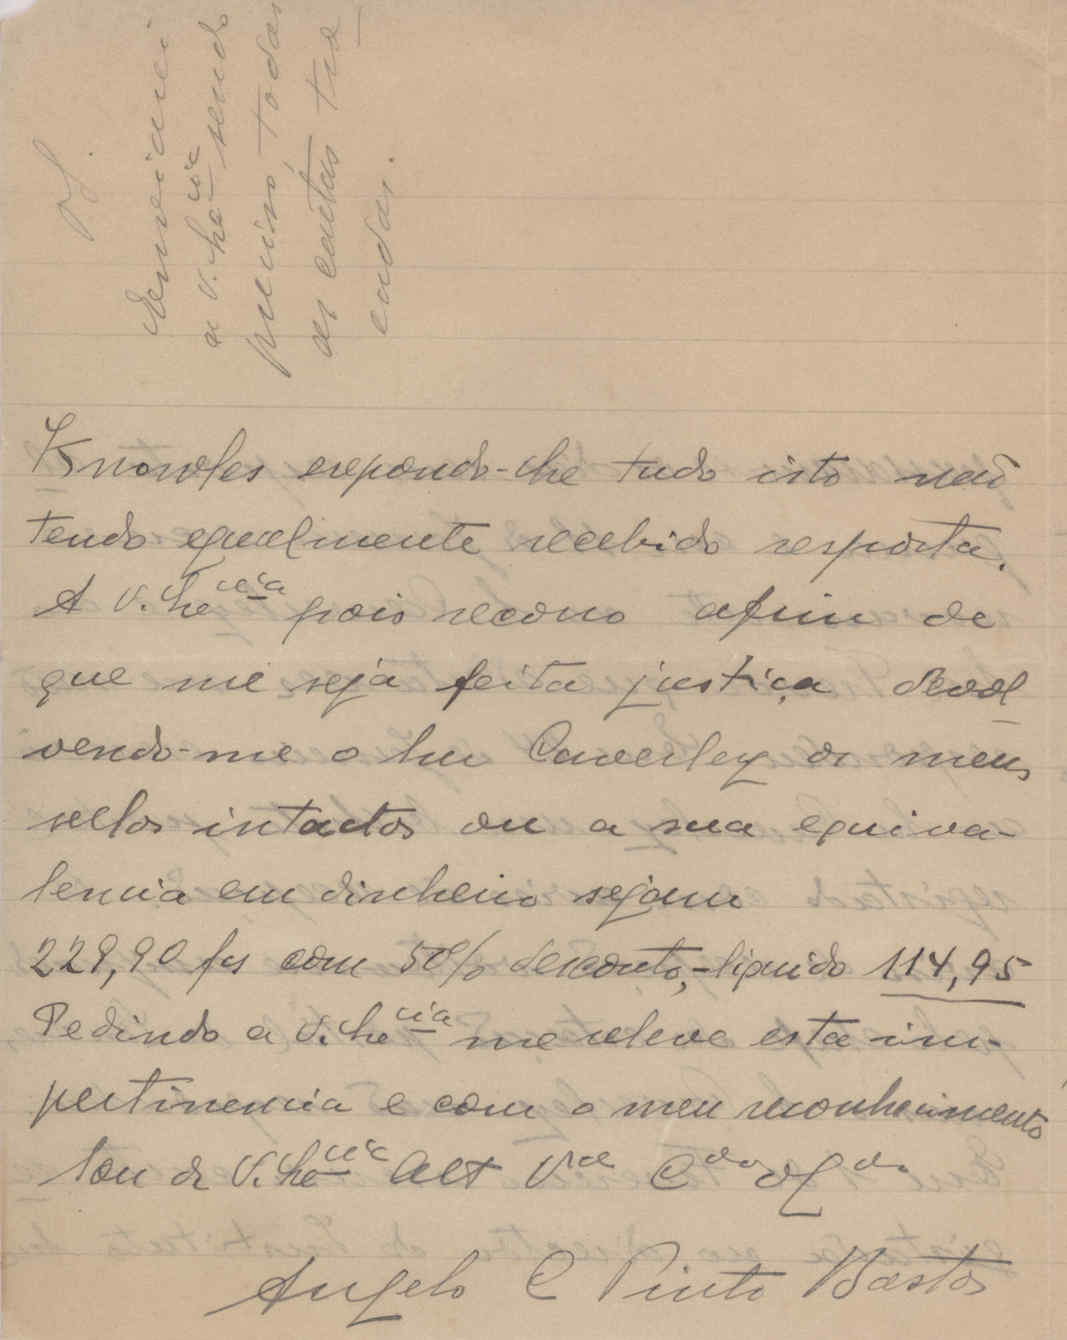 Knowles expondo-lhe tudo isto não
tendo egualmente recebido resposta.
A V. Ex.cia pois recorro afim de
que me seja feita justiça devol
vendo-me o Snr Caverley os meus
sellos intactos ou a sua equiva-
lencia em dinheiro sejam
229,90 fcs com 50% desconto,-liquido 114,95
Pedindo a V. Ex.cia me releve esta im-
pertinencia e com o meu reconhecimento
Sou de V. Ex.cia Att V.or C.do Ob.do
Angelo C Pinto Bastos
a V. Ex.cia sendo
preciso todas
as cartas tro
cadas.